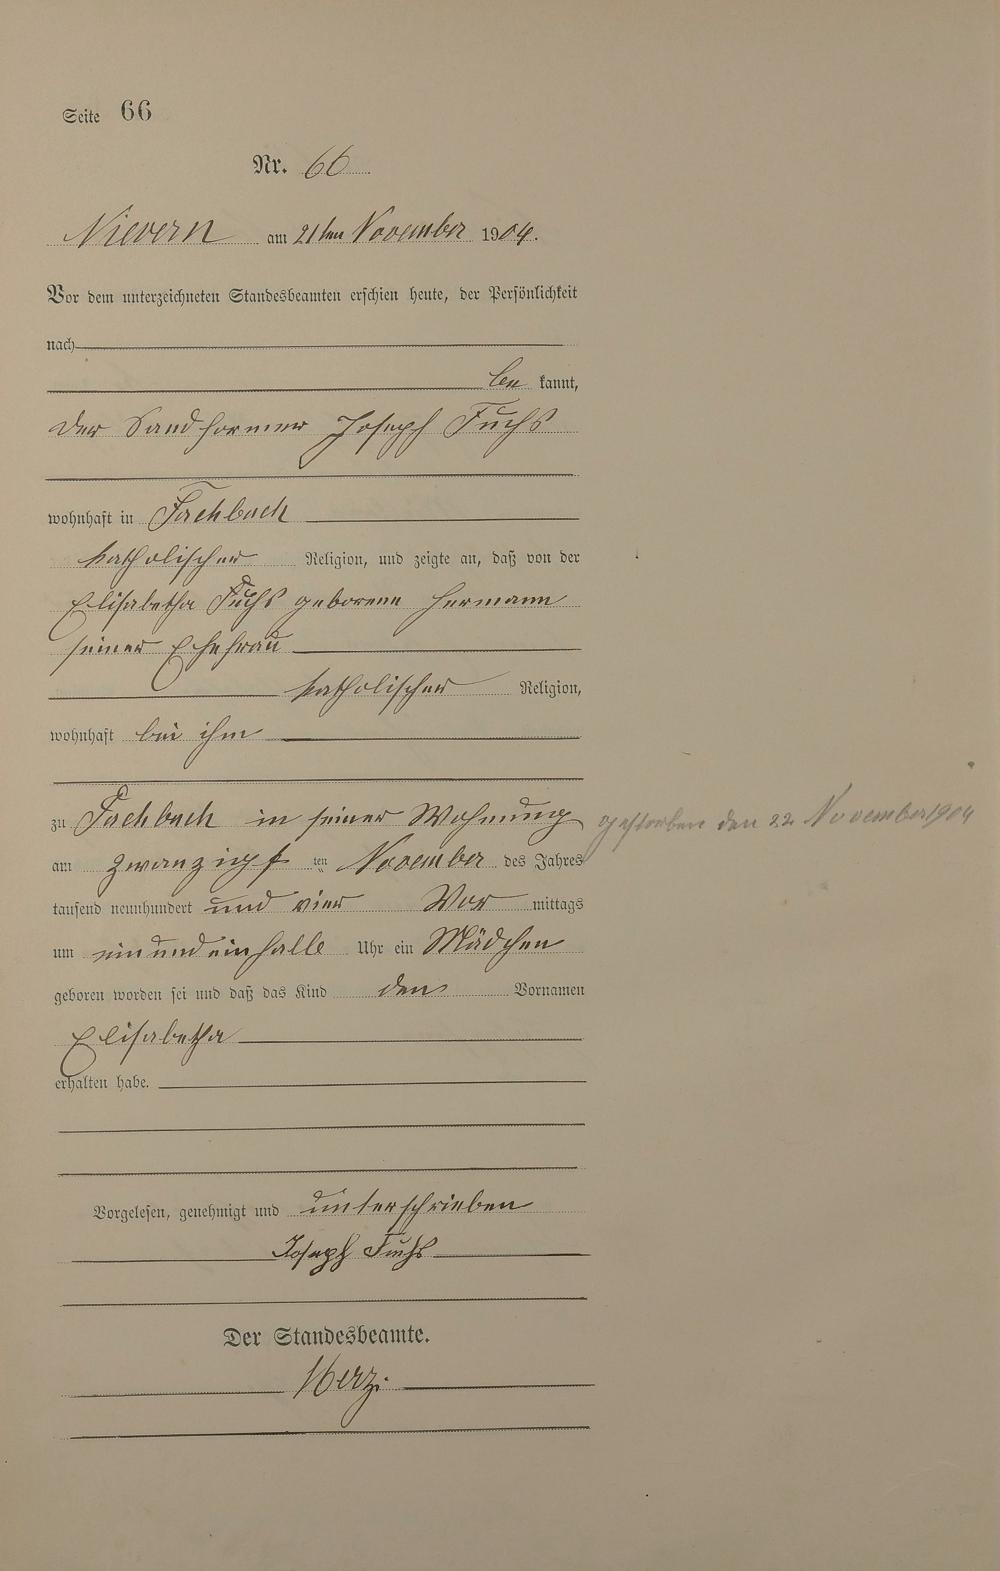 Seite 66
Nr. 66
Nievern am 21ten November 1904.
Vor dem unterzeichneten Standesbeamten erschien heute, der Persönlichkeit
nach
be kannt,
der Sandformer Joseph Fuchs
wohnhaft in Fachbach
katholischer Religion, und zeigte an, daß von der
Elisabetha Fuchs geborene Hermann
seiner Ehefrau
katholischer Religion,
wohnhaft bei ihm
zu Fachbach in seiner Wohnung
gestorben den 22 November 1904
am zwanzigst ten November des Jahres
tausend neunhundert und vier Vor mittags
um ein und ein halb Uhr ein Mädchen
geboren worden sei und daß das Kind den Vornamen
Elisabetha
erhalten habe.
Vorgelesen, genehmigt und unterschrieben
Joseph Fuchs
Der Standesbeamte.
Herz.